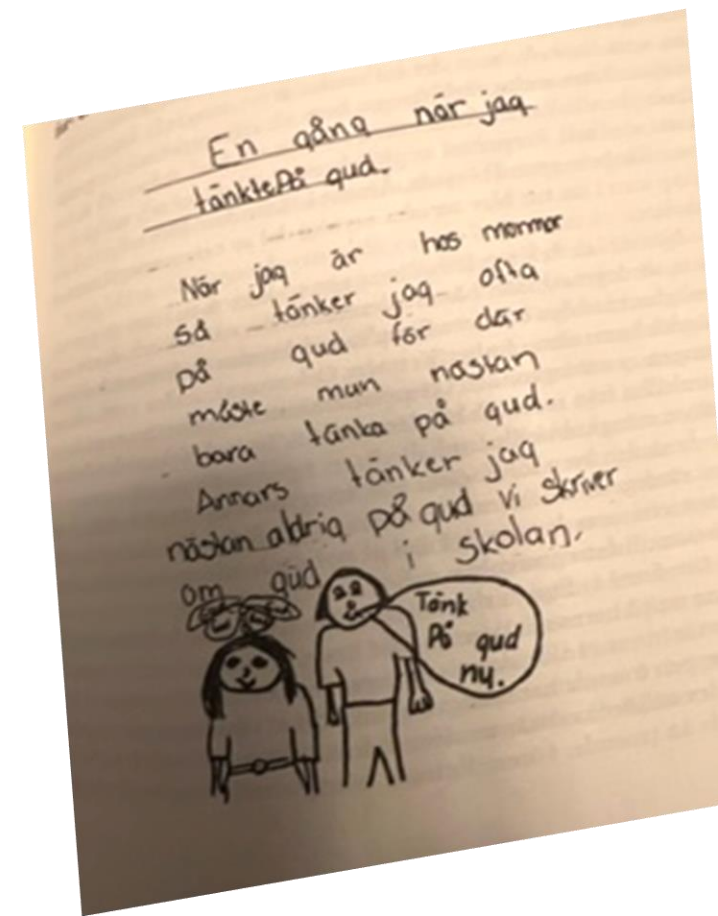 En gång när jag
tänkte på gud.
När jag är hos mormor
så tänker jag ofta
på gud för där
måste man nästan
bara tänka på gud.
Annars tänker jag
nästan aldrig på gud vi skriver
om gud i skolan.
Tänk
på gud
ny.